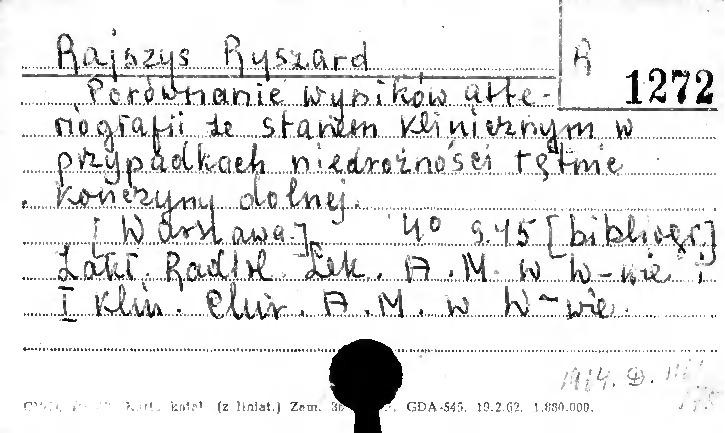 Rajszys Ryszard
R
1272
Porównanie wyników arte-
riografii ze stanem klinicznym w
przypadkach niedrożności tętnic
kończyny dolnej.
[Warszawa.] 4° s. 45 [bibliogr.]
Zakł. Radiol. Lek. A.M. w W-wie i
I Klin. Chir. A.M. w W-wie.
1964. D.
katal. (z liniat.) Zam. GDA-545. 19.2.62. 1.880.000.